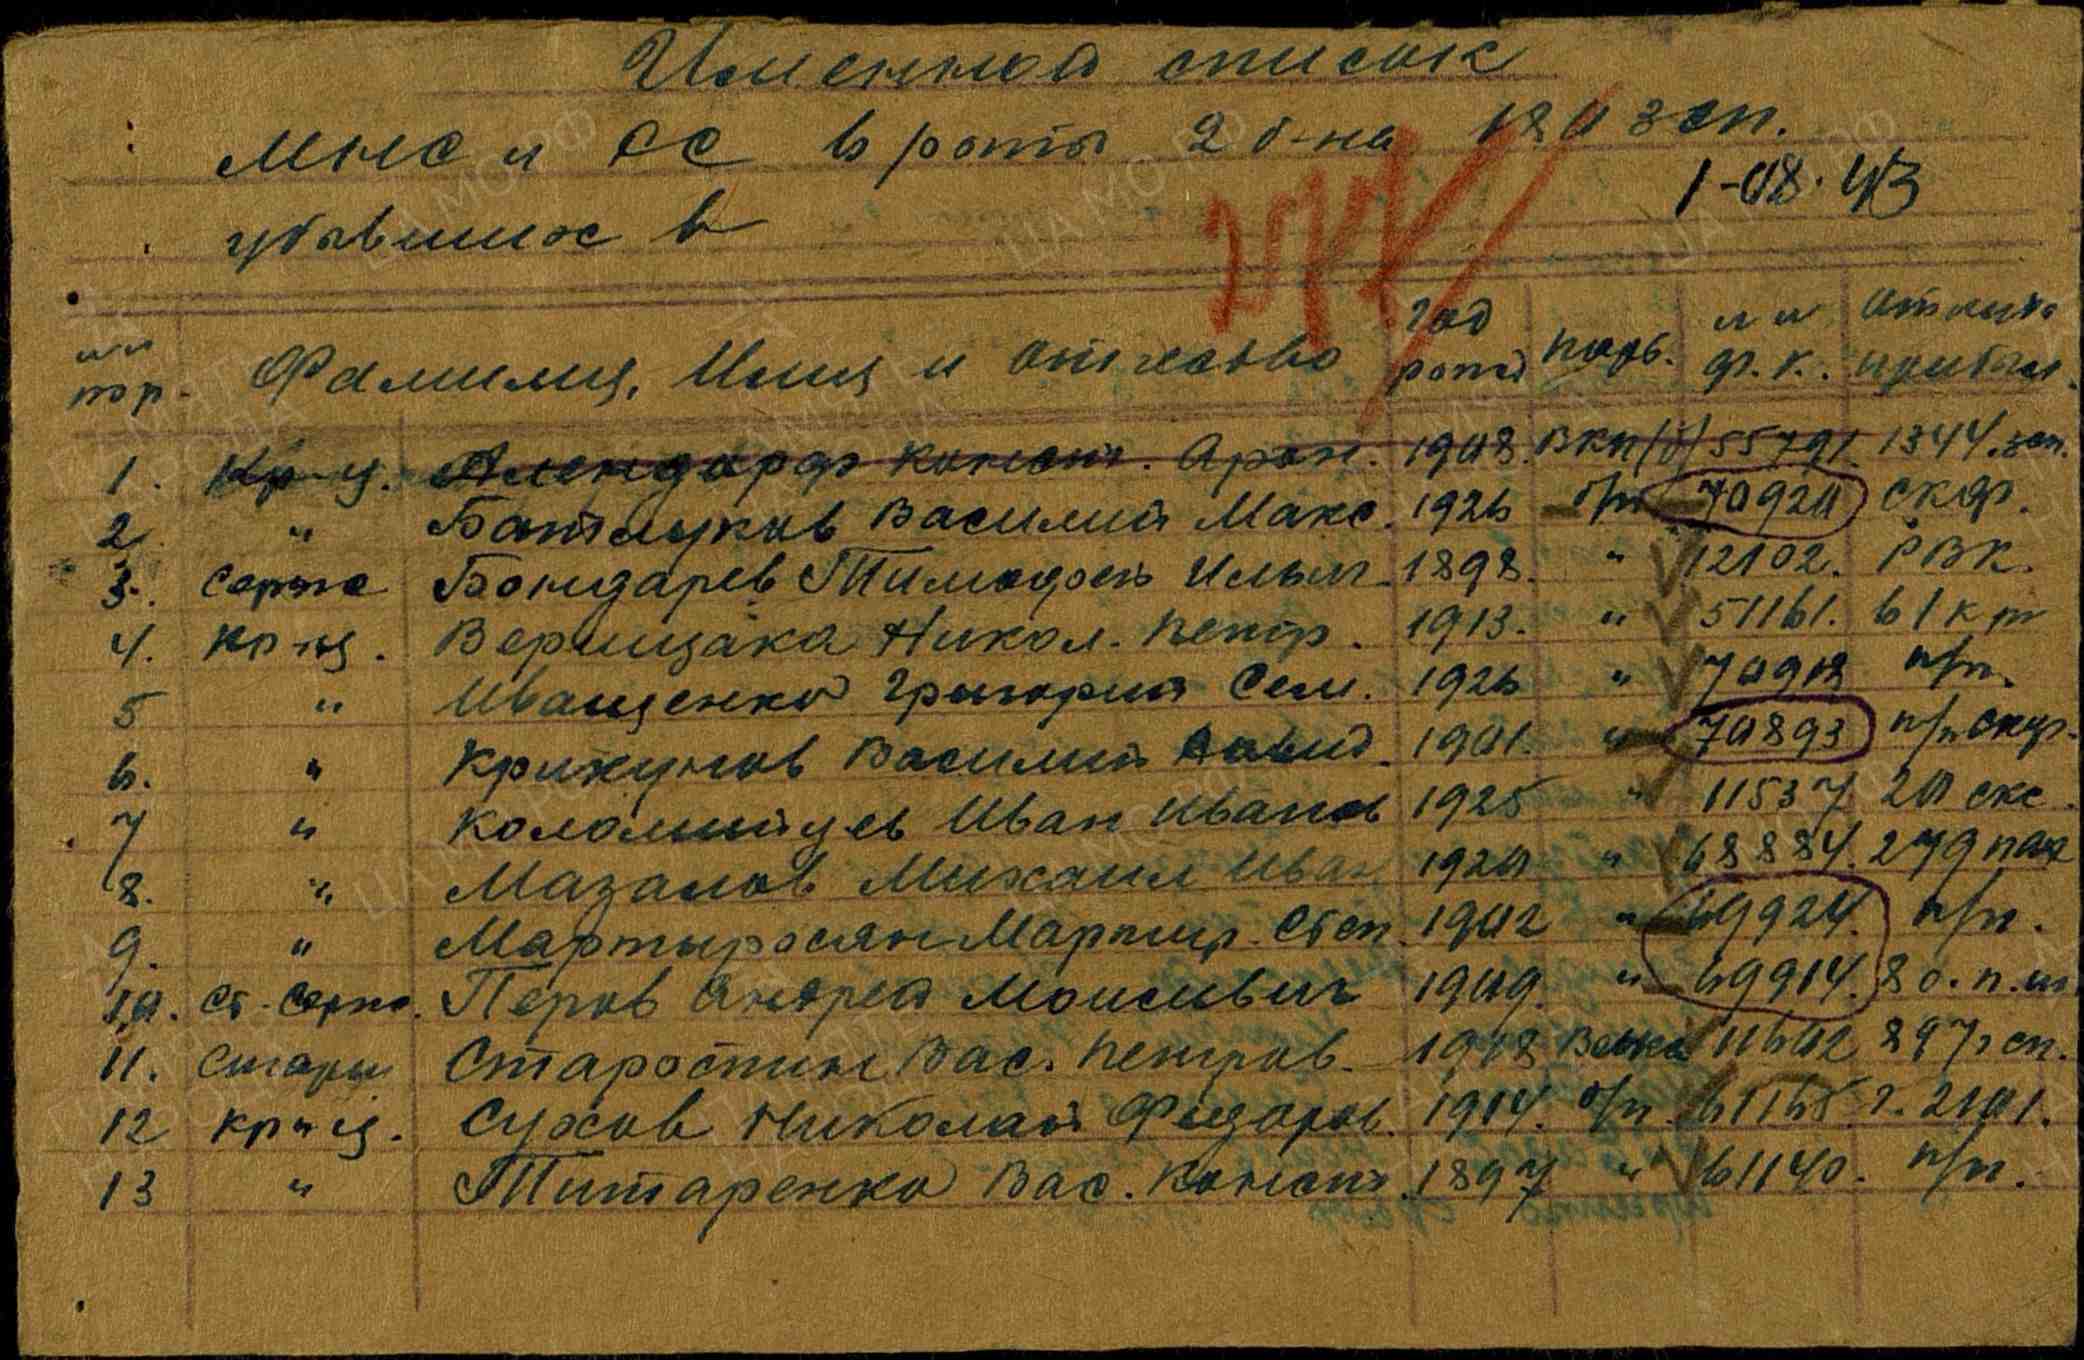 Именной список
МНС и СС 6 роты 2 б-на 180 зсп.
1-08.43
убывших в
277
№№ пор. Фамилия, Имя и отчество год рожд парт. №№ ф.к. откуда прибыл.
1. Кр-ц. Алендорф Конст. Арон. 1908. ВКП(б) 55791. 1344.зсп.
2. " Батлуков Василий Макс. 1926 б/п 70920 СКФ.
3. Сержа Бондарев Тимофей Ильич 1898. " 12102. РВК.
4. Кр-ц. Верищака Никол. Петр. 1913. " 51161. 61кт
5 " Иващенко Григорий Сем. 1926 " 70918 п/п.
6. " Крикунов Василий Давид. 1901. " 70893 п/п СКФ.
7 " Коломийцев Иван Иванов 1925 " 11537 20 скс.
8. " Мазалов Михаил Иван 1920 " 68884. 279 пах
9. " Мартыросян Мартир. Степ. 1902 " 69924. п/п.
10. Ст-Серж. Перов Андрей Моисевич 1909. " 69914. 8 о.п.ш.
11. Сигары Старостин Вас. Петров. 1918 11602 897 сп.
12 кр-ц. Сухов Николай Федоров. 1914. б/п. 61165 г. 2101.
13 " Титаренко Вас. Конст. 1897 " 61140. п/п.